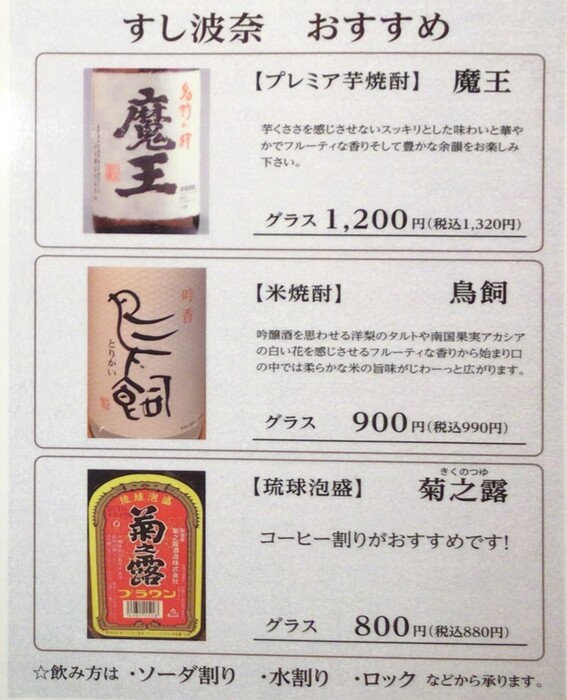 すし波奈　おすすめ
名門の粋
魔王
【プレミア芋焼酎】　魔王
芋くささを感じさせないスッキリとした味わいと華や
かでフルーティな香りそして豊かな余韻をお楽しみ
下さい。
グラス 1,200円(税込1,320円)
吟香
鳥飼
とりかい
【米焼酎】　鳥飼
吟醸酒を思わせる洋梨のタルトや南国果実アカシア
の白い花を感じさせるフルーティな香りから始まり口
の中では柔らかな米の旨味がじわーっと広がります。
グラス　900円(税込990円)
琉球泡盛
菊之露
菊之露酒造株式会社
ブラウン
きくのつゆ
【琉球泡盛】　菊之露
コーヒー割りがおすすめです!
グラス　800円(税込880円)
☆飲み方は ・ソーダ割り　・水割り　・ロック などから承ります。